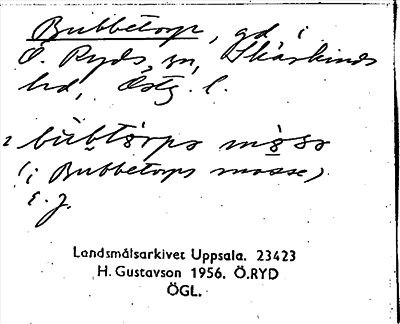 Bubbetorp, gd, i
Ö. Ryds sn, Skärkinds
hd, Östg. l.
i Bubbetorps mosse)
E. J.
Landsmålsarkivet Uppsala. 23423
H. Gustavson 1956. Ö.RYD
ÖGL.